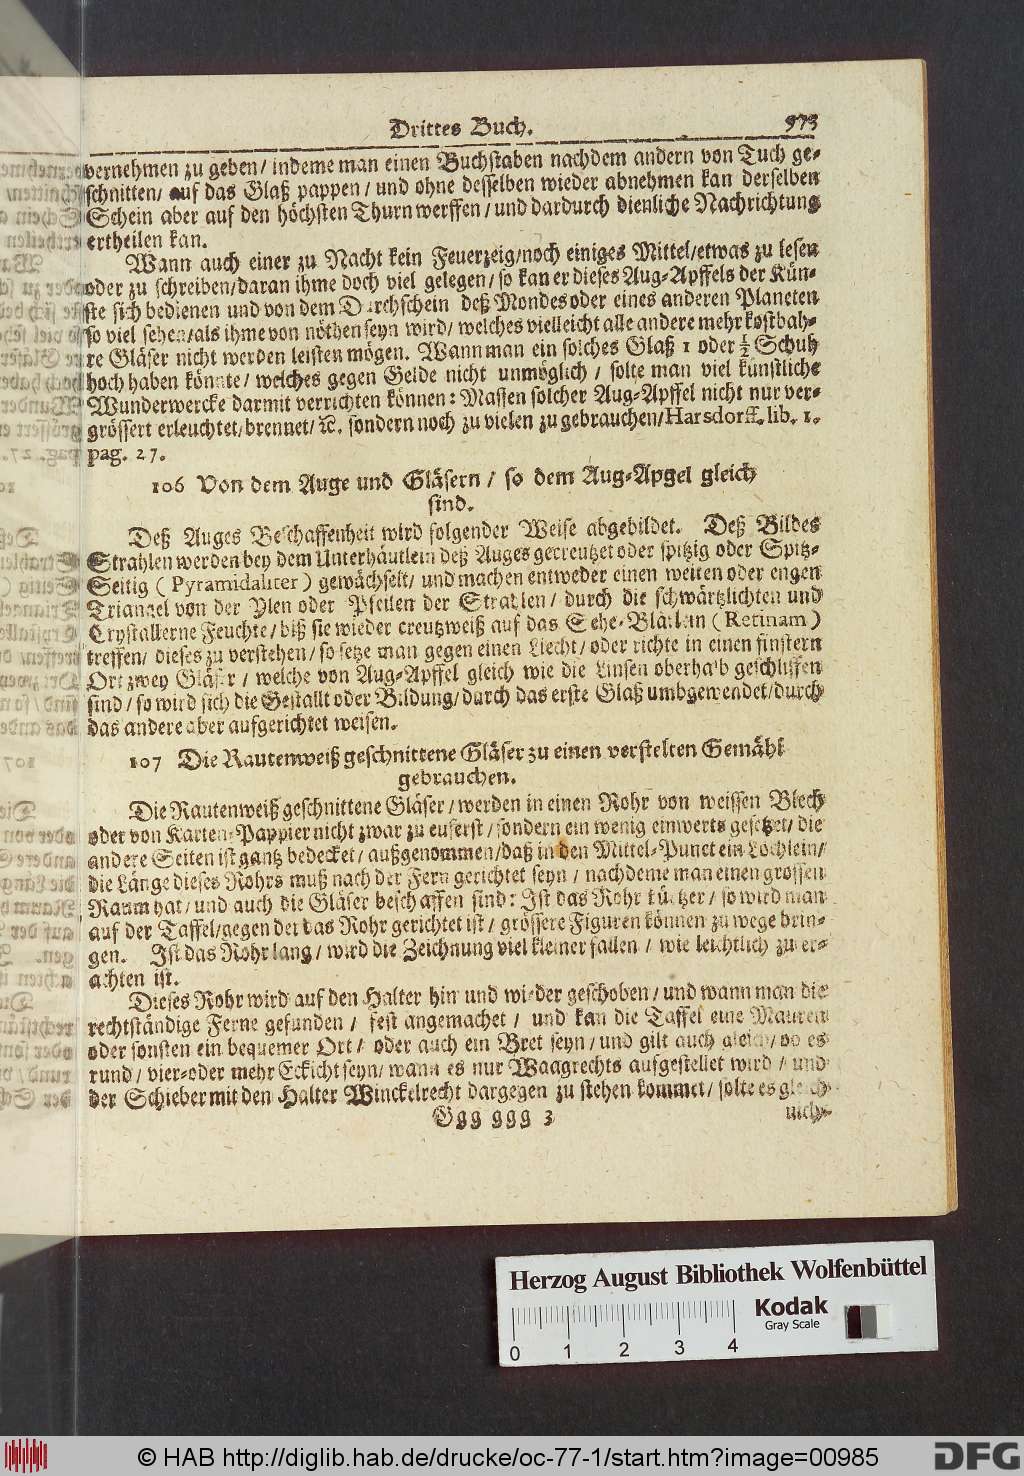 Drittes Buch. 973
vernehmen zu geben/ indeme man einen Buchstaben nachdem andern von Tuch ge-
schnitten/ auf das Glaß pappen/ und ohne desselben wieder abnehmen kan derselben
Schein aber auf den höchsten Thurn werffen/ und dardurch dienliche Nachrichtung
ertheilen kan.
Wann auch einer zu Nacht kein Feuerzeig/noch einiges Mittel/etwas zu lesen
oder zu schreiben/daran ihme doch viel gelegen/ so kan er dieses Aug-Apffels der Kün-
ste sich bedienen und von dem Durchschein deß Mondes oder eines anderen Planeten
so viel sehen/als ihme von nöthen seyn wird/ welches vielleicht alle andere mehr kostbah-
re Gläser nicht werden leisten mögen. Wann man ein solches Glaß 1 oder ½ Schuh
hoch haben könnte/ welches gegen Gelde nicht unmöglich/ solte man viel künstliche
Wunderwercke darmit verrichten können: Massen solcher Aug-Apffel nicht nur ver-
grössert erleuchtet/ brennet/ ꝛc. sondern noch zu vielen zu gebrauchen/ Harsdorff. lib. 1.
pag. 27.
106 Von dem Auge und Gläsern/ so dem Aug-Apgel gleich
sind.
Deß Auges Beschaffenheit wird folgender Weise abgebildet. Deß Bildes
Strahlen werden bey dem Unterhäutlein deß Auges gecreutzet oder spitzig oder Spitz-
Seitig (Pyramidaliter) gewächselt/ und machen entweder einen weiten oder engen
Triangel von der Ylen oder Pfeilen der Strahlen/ durch die schwärtzlichten und
Crystallerne Feuchte/ biß sie wieder creutzweiß auf das Sehe-Blätlein (Retinam)
treffen/ dieses zu verstehen/ so setze man gegen einen Liecht/ oder richte in einen finstern
Ort zwey Gläser/ welche von Aug-Apffel gleich wie die Linsen oberhalb geschliffen
sind/ so wird sich die Gestallt oder Bildung/ durch das erste Glaß umbgewendet/ durch
das andere aber aufgerichtet weisen.
107 Die Rautenweiß geschnittene Gläser zu einen verstelten Gemähl
gebrauchen.
Die Rautenweiß geschnittene Gläser/ werden in einen Rohr von weissen Blech
oder von Karten-Pappier nicht zwar zu euserst/ sondern ein wenig einwerts gesetzet/ die
andere Seiten ist gantz bedecket/ außgenommen/daß in den Mittel-Punct ein Löchlein/
die Länge dieses Rohrs muß nach der Fern gerichtet seyn/ nachdeme man einen grossen
Raum hat/ und auch die Gläser beschaffen sind: Ist das Rohr kürtzer/ so wird man
auf der Taffel/gegen der das Rohr gerichtet ist/ grössere Figuren können zu wege brin-
gen. Ist das Rohr lang/ wird die Zeichnung viel kleiner fallen/ wie leichtlich zu er-
achten ist.
Dieses Rohr wird auf den Halter hin und wieder geschoben/ und wann man die
rechtständige Ferne gefunden/ fest angemachet/ und kan die Taffel eine Mauren
oder sonsten ein bequemer Ort/ oder auch ein Bret seyn/ und gilt auch gleich/ ob es
rund/ vier-oder mehr Eckicht seyn/ wann es nur Waagrechts aufgestellet wird/ und
der Schieber mit den Halter Winckelrecht dargegen zu stehen kommet/ solte es gleich
Ggg ggg 3 nich-
Herzog August Bibliothek Wolfenbüttel
Kodak
Gray Scale
0 1 2 3 4
© HAB http://diglib.hab.de/drucke/oc-77-1/start.htm?image=00985
DFG